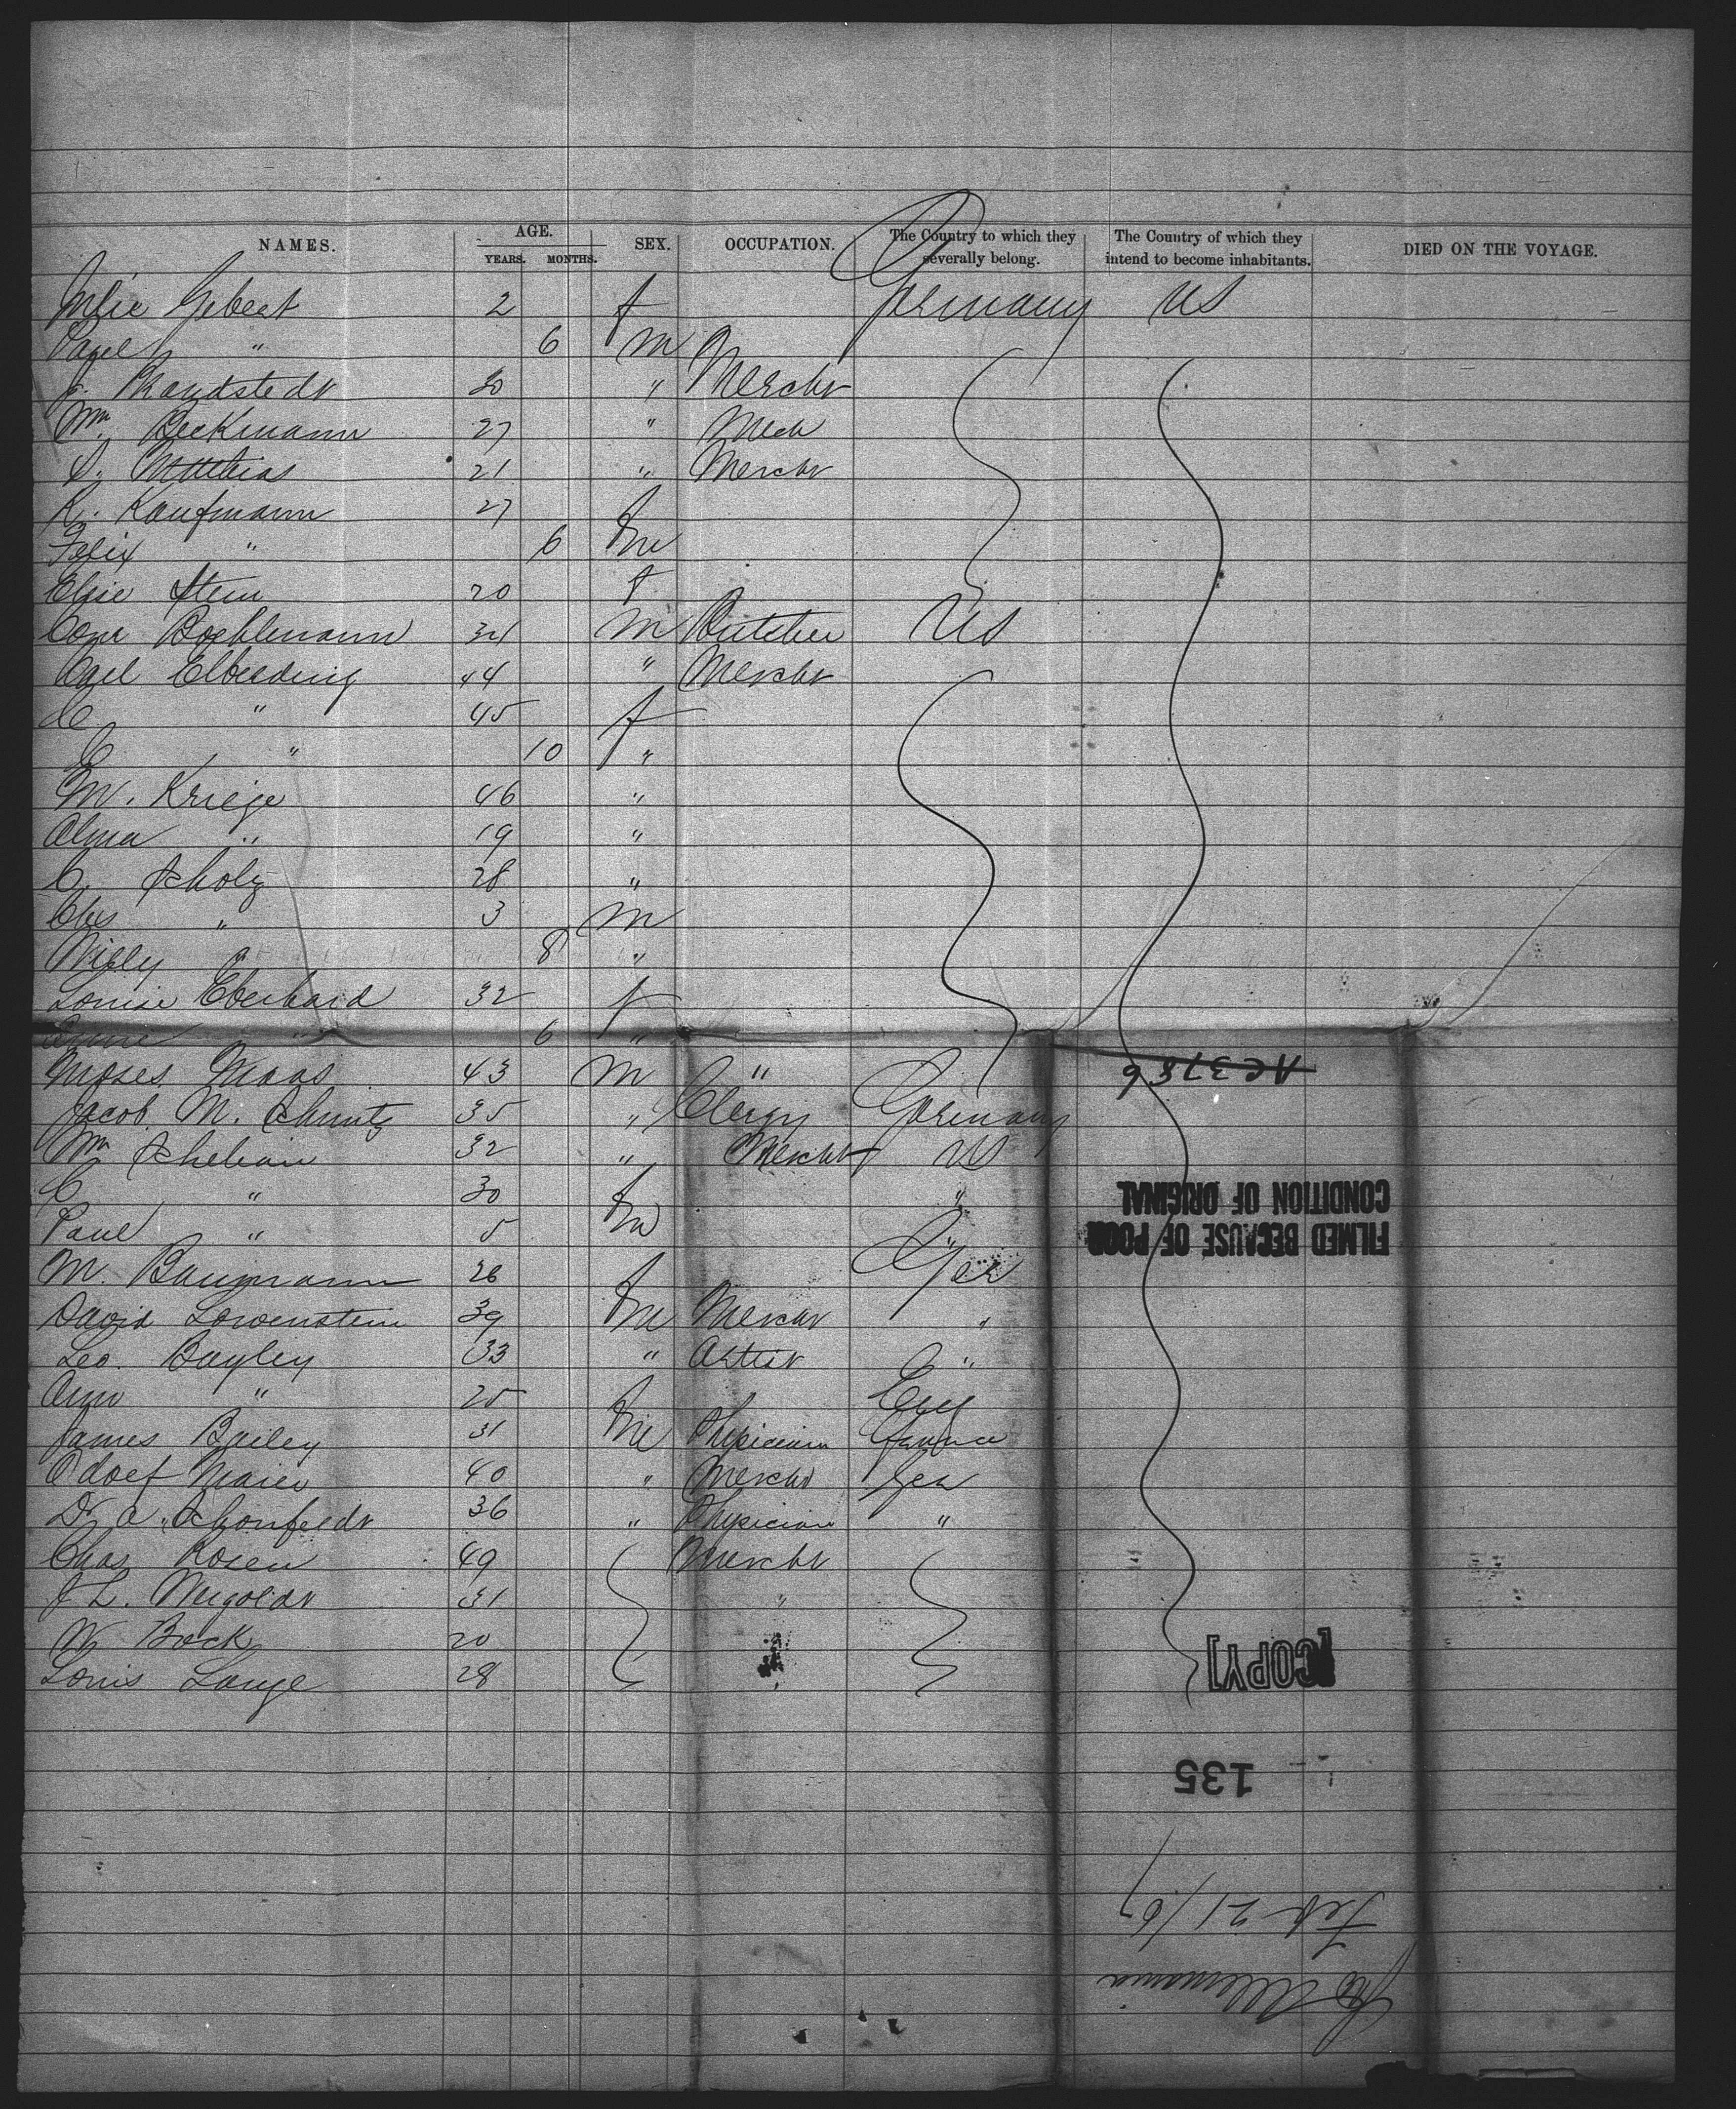 NAMES. AGE. YEARS. MONTHS. SEX. OCCUPATION. The Country to which they severally belong. The Country of which they intend to become inhabitants. DIED ON THE VOYAGE.
Julie Gebert 2 f Germany US
Paul " 6 m
J. Brandstedt 20 " Mercht
Wm. Beckmann 27 " Mech
S. Matthias 21 " Mercht
R. Kaufmann 27 f
Felix " 6 m
Elsie Stein 20 f
Conr Boehlmann 34 m Butcher US
Carl Elberding 44 " Mercht
C " 45 f
E " 10 "
M. Kriege 46 "
Alma " 19 "
C. Scholz 28 "
Chs " 3 m
Willy 8 "
Louise Eberhard 32 f
Anne " 6 "
Moses Maas 43 m "
Jacob M. Schmitz 35 " Clergy Germany
Wm Schelian 32 " Mercht US
C " 30 f "
Paul " 5 m "
M. Baumann 26 f Ger
David Lowenstein 39 m Mercht "
Leo. Bayley 33 " Artist "
Ann " 25 f Eng
James Bailey 31 m Physician France
Adolf Maier 40 " Mercht Ger
Dr. A. Schonfeldt 36 " Physician "
Chas Rosen 49 Mercht
J L. Weigoldt 31 "
W Bock 20
Louis Lange 28 "
AC 3786
FILMED BECAUSE OF POOR
CONDITION OF ORIGINAL
[COPY]
135
Feb 21/67
Allemannia